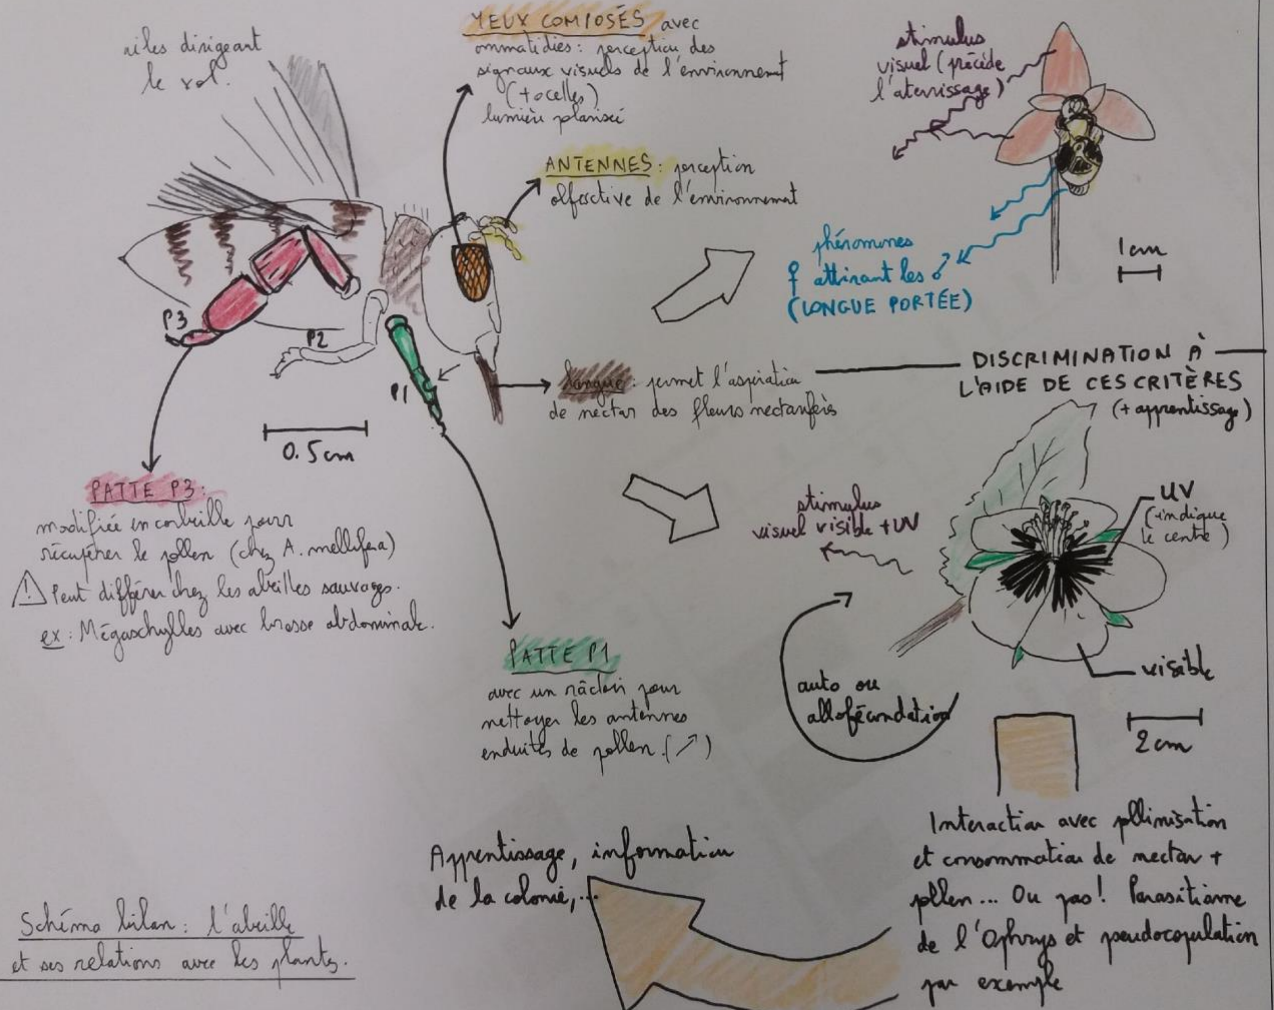 ailes dirigeant
le vol.
YEUX COMPOSÉS avec
ommatidies : perception des
signaux visuels de l'environnement
(+ ocelles)
lumière polarisé
ANTENNES : perception
olfactive de l'environnement
stimulus
visuel (précède
l'aterrissage)
phéromones
♀ attirant les ♂
(LONGUE PORTÉE)
1 cm
P3
P2
P1
0.5 cm
langue : permet l'aspiration
de nectar des fleurs nectarifères
DISCRIMINATION À
L'AIDE DE CES CRITÈRES
(+ apprentissage)
PATTE P3 :
modifiée en corbeille pour
récupérer le pollen (chez A. mellifera)
⚠ Peut différer chez les abeilles sauvages.
ex : Mégaschylles avec brosse abdominale.
PATTE P1
avec un râcloir pour
nettoyer les antennes
enduites de pollen. (↗)
stimulus
visuel visible + UV
UV
(indique
le centre)
visible
2 cm
auto ou
allofécondation
Interaction avec pllinisation
et consommation de nectar +
pllen... Ou pas ! Parasitisme
de l'Ophrys et pseudocopulation
par exemple
Apprentissage, information
de la colonie,...
Schéma bilan : l'abeille
et ses relations avec les plantes.